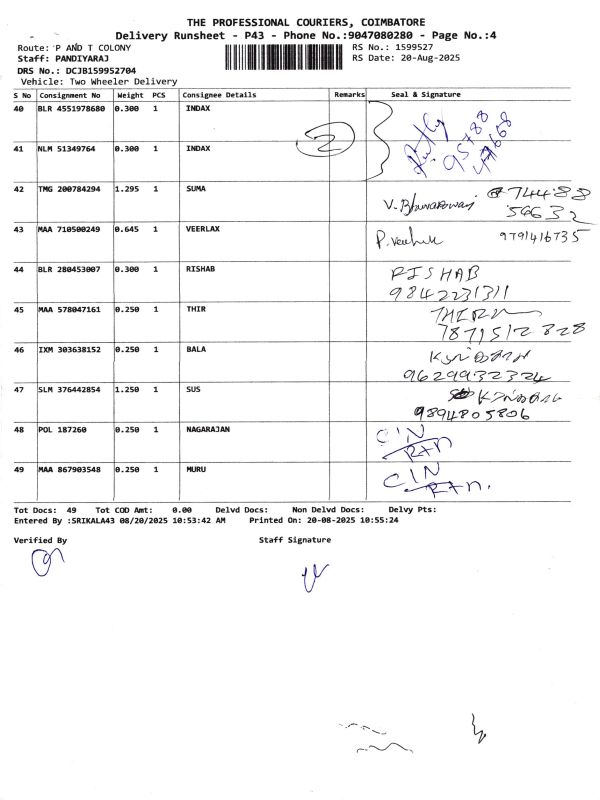 THE PROFESSIONAL COURIERS, COIMBATORE
Delivery Runsheet - P43 - Phone No.:9047080280 - Page No.:4
Route: P AND T COLONY
RS No.: 1599527
Staff: PANDIYARAJ
RS Date: 20-Aug-2025
DRS No.: DCJB159952704
Vehicle: Two Wheeler Delivery
S No Consignment No Weight PCS Consignee Details Remarks Seal & Signature
40 BLR 4551978680 0.300 1 INDAX
2
41 NLM 51349764 0.300 1 INDAX
95788
42 TMG 200784294 1.295 1 SUMA
74488
59632
43 MAA 710500249 0.645 1 VEERLAX
9791416735
44 BLR 280453007 0.300 1 RISHAB RISHAB
9842231311
45 MAA 578047161 0.250 1 THIR
7871512828
46 IXM 303638152 0.250 1 BALA
9629932324
47 SLM 376442854 1.250 1 SUS
9894805806
48 POL 187260 0.250 1 NAGARAJAN C/N
RTN
49 MAA 867903548 0.250 1 MURU C/N
RTN.
Tot Docs: 49 Tot COD Amt: 0.00 Delvd Docs: Non Delvd Docs: Delvy Pts:
Entered By :SRIKALA43 08/20/2025 10:53:42 AM Printed On: 20-08-2025 10:55:24
Verified By Staff Signature